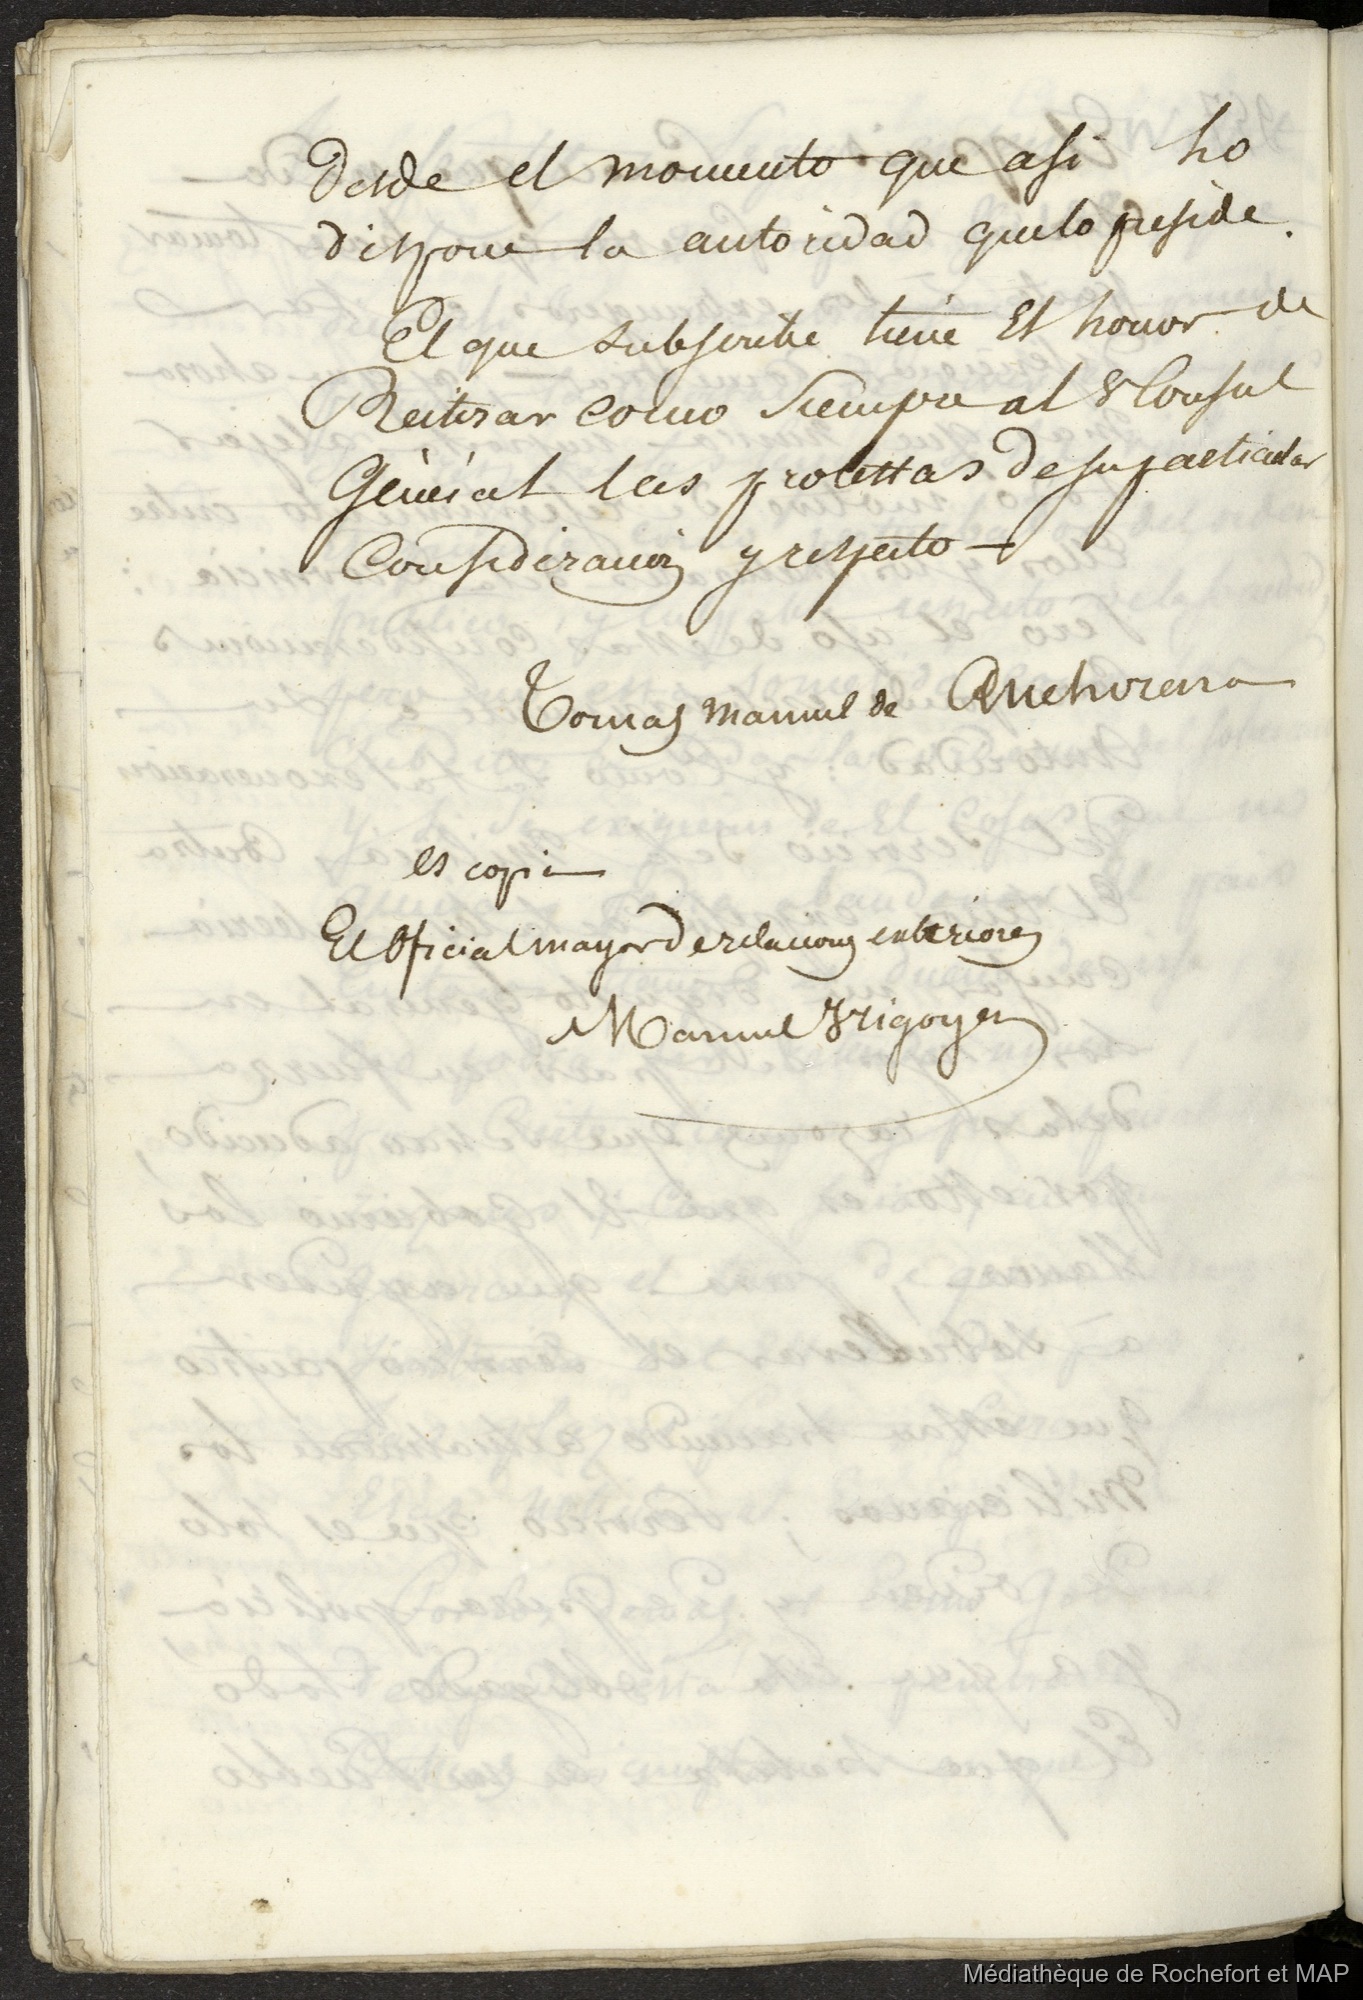 Desde el momento que asi ho
dispone la autoridad que lo preside.
El que subscribe tiene El honor de
Reiterar Como Siempre al Sr Consul
Géneral las protestas de su particular
Consideracion y respeto —
Tomas Manuel de Anchorena
es copia
El Oficial mayor de relaciones exteriores
Manuel Yrigoyen
Médiathèque de Rochefort et MAP